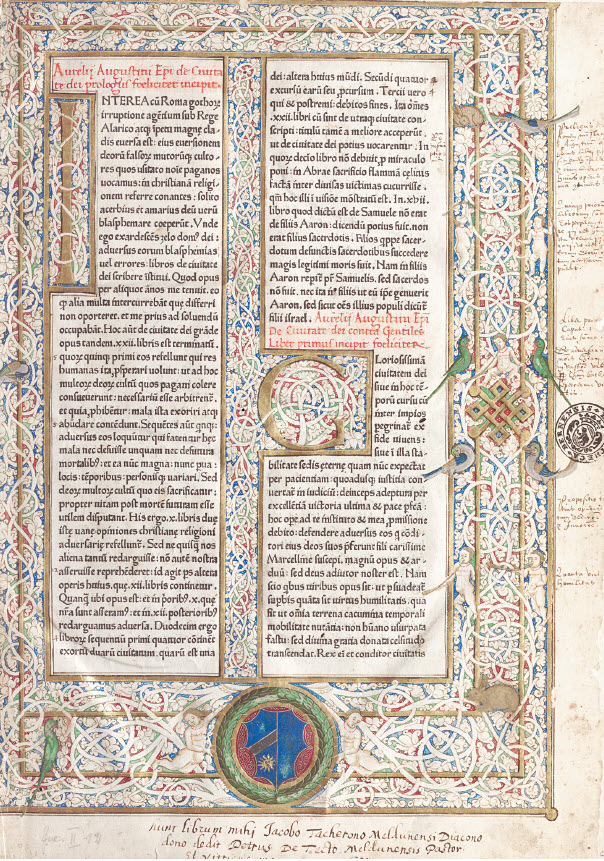 Aurelij Augustini Epi de Ciuita
te dei prologus foeliciter incipit.
INTEREA cū Roma gothoꝝ
irruptione agētium sub Rege
Alarico atqȝ īpetu magnę cla-
dis euersa est: eius euersionem
deorū falsoꝝ mutorūqȝ culto-
res quos usitato noīe paganos
uocamus: in christianā religi-
onem referre conantes: solito
acerbius et amarius deū uerū
blasphemare coeperūt. Vnde
ego exardescēs zelo domꝰ dei:
aduersus eorum blasphemias
uel errores: libros de ciuitate
dei scribere īstitui. Quod opus
per aliquot ānos me tenuit. eo
ꝙ alia multa intercurrebāt que differri
non oporteret. et me prius ad soluendū
occupabāt. Hoc aūt de ciuitate dei grāde
opus tandem .xxii. libris est terminatū.
quoꝝ quinqȝ primi eos refellunt qui res
humanas ita ꝓsperari uolunt: ut ad hoc
multoꝝ deoꝝ cultū quos pagani colere
consueuerunt: necessariū esse arbitrent̄.
et quia ꝓhibēt̄ur: mala ista exoriri atqȝ
abūdare contēdunt. Sequētes aūt qnqȝ:
aduersus eos loquūtur qui fatentur hęc
mala nec defuisse unquam nec defutura
mortalibꝰ: et ea nūc magna: nunc pua:
locis: tēporibus: personisqȝ uariari. Sed
deoꝝ multoꝝ cultū quo eis sacrificatur:
propter uitam post mortem futuram esse
utilem disputant. His ergo .x. libris due
istę uanę opiniones christianę religioni
aduersarię refellunt̄. Sed ne quisqȝ nos
aliena tantū redarguisse: nō aūt nostra
asseruisse reprehēderet: id agit ps altera
operis huius, que .xii. libris continetur.
Quanqȝ ubi opus est: et in porībꝰ .x. que
nr̄a sunt asseram9: et in .xii. posterioribꝰ
redarguamus aduersa. Duodecim ergo
libroꝝ sequentiū primi quatuor cōtinēt
exortū duarū ciuitatum. quarū est una
dei: altera huius mūdi. Secūdi quatuor
excursū earū seu ꝓcursum. Tercii uero
qui & postremi: debitos fines. Ita oēs
.xxii. libri cū sint de utraqȝ ciuitate con-
scripti: titulū tamē a meliore acceperūt.
ut de ciuitate dei potius uocarentur. In
quoꝝ decīo libro nō debuit, ꝓ miraculo
poni: in Abrae sacrificio flammā celitus
factā inter diuisas uictimas cucurrisse.
qm̄ hoc illi ī uisiōe mōstratū est. In .xvii.
libro quod dictū est de Samuele nō erat
de filiis Aaron: dicendū potius fuit, non
erat filius sacerdotis. Filios qppe sacer-
dotum defunctis sacerdotibus succedere
magis legitimi moris fuit. Nam in filiis
Aaron repit̄ pr̄ Samuelis. sed sacerdos
nō fuit. nec ita in filiis ut eū ip̄e genuerit
Aaron. sed sicut oēs illius populi dicūt̄
filii israel. Aurelij Augustini Epi
De Ciuitate dei contra Gentiles
Liber primus incipit foeliciter.
GLoriosissimā
ciuitatem dei
siue in hoc tē-
porū cursu cū
inter impios
pegrinat̄ ex
fide uiuens:
siue ī illa sta-
bilitate sedis eternę quam nūc expectat
per pacientiam: quoadusqȝ iusticia con-
uertat̄ in iudiciū: deinceps adeptura per
excellētiā uictoria ultima & pace pfecta:
hoc opeȝ ad te instituto & mea ꝓmissione
debito: defendere aduersus eos q̄ cōdi-
tori eius deos suos p̄ferunt fili carissime
Marcelline suscepi. magnū opus & ar-
duū: sed deus adiutor noster est. Nam
scio qbus uiribus opus sit: ut psuadeat̄
supbis quāta sit uirtus humilitatis. qua
fit ut omīa terrena cacumina temporali
mobilitate nutātia: non hūano usurpata
fastu: sed diuina gratia donata celsitudo
transcendat. Rex eī et conditor ciuitatis
hunc librum mihi Iacobo Tacherono Meldunensi Diacono
dono dedit Petrus De Tecto Meldunensis Pastor